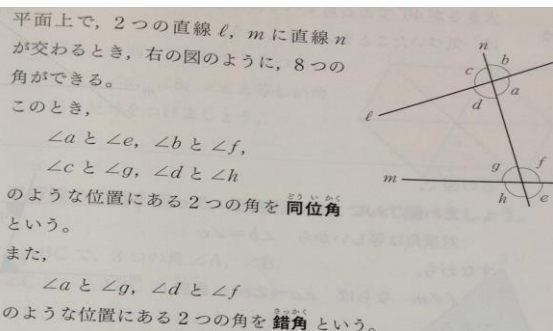 平面上で，2つの直線ℓ，mに直線n
が交わるとき，右の図のように，8つの
角ができる。
このとき，
∠aと∠e，∠bと∠f，
∠cと∠g，∠dと∠h
どういかく
のような位置にある2つの角を同位角
という。
また，
∠aと∠g，∠dと∠f
さっかく
のような位置にある2つの角を錯角という。
n
b
c
a
d
ℓ
g
f
m
h
e